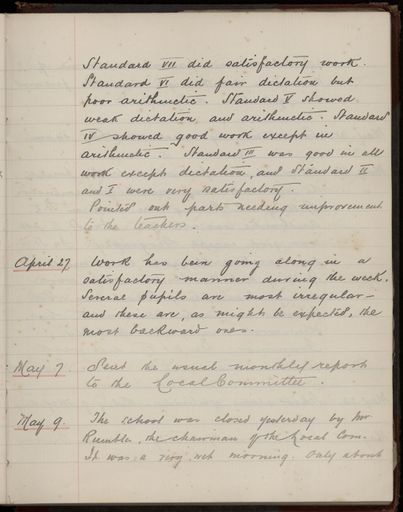 Standard VII did satisfactory work.
Standard VI did fair dictation but
poor arithmetic. Standard V showed
weak dictation and arithmetic. Standard
IV showed good work except in
arithmetic. Standard III was good in all
work except dictation, and Standard II
and I were very satisfactory.
Pointed out parts needing improvement
to the teachers.
April 27. Work has been going along in a
satisfactory manner during the week.
Several pupils are most irregular -
and these are, as might be expected, the
most backward ones.
May 7. Sent the usual monthly report
to the Local Committee.
May 9. The school was closed yesterday by Mr
the chairman of the Local Com.
It was a very wet morning. Only about